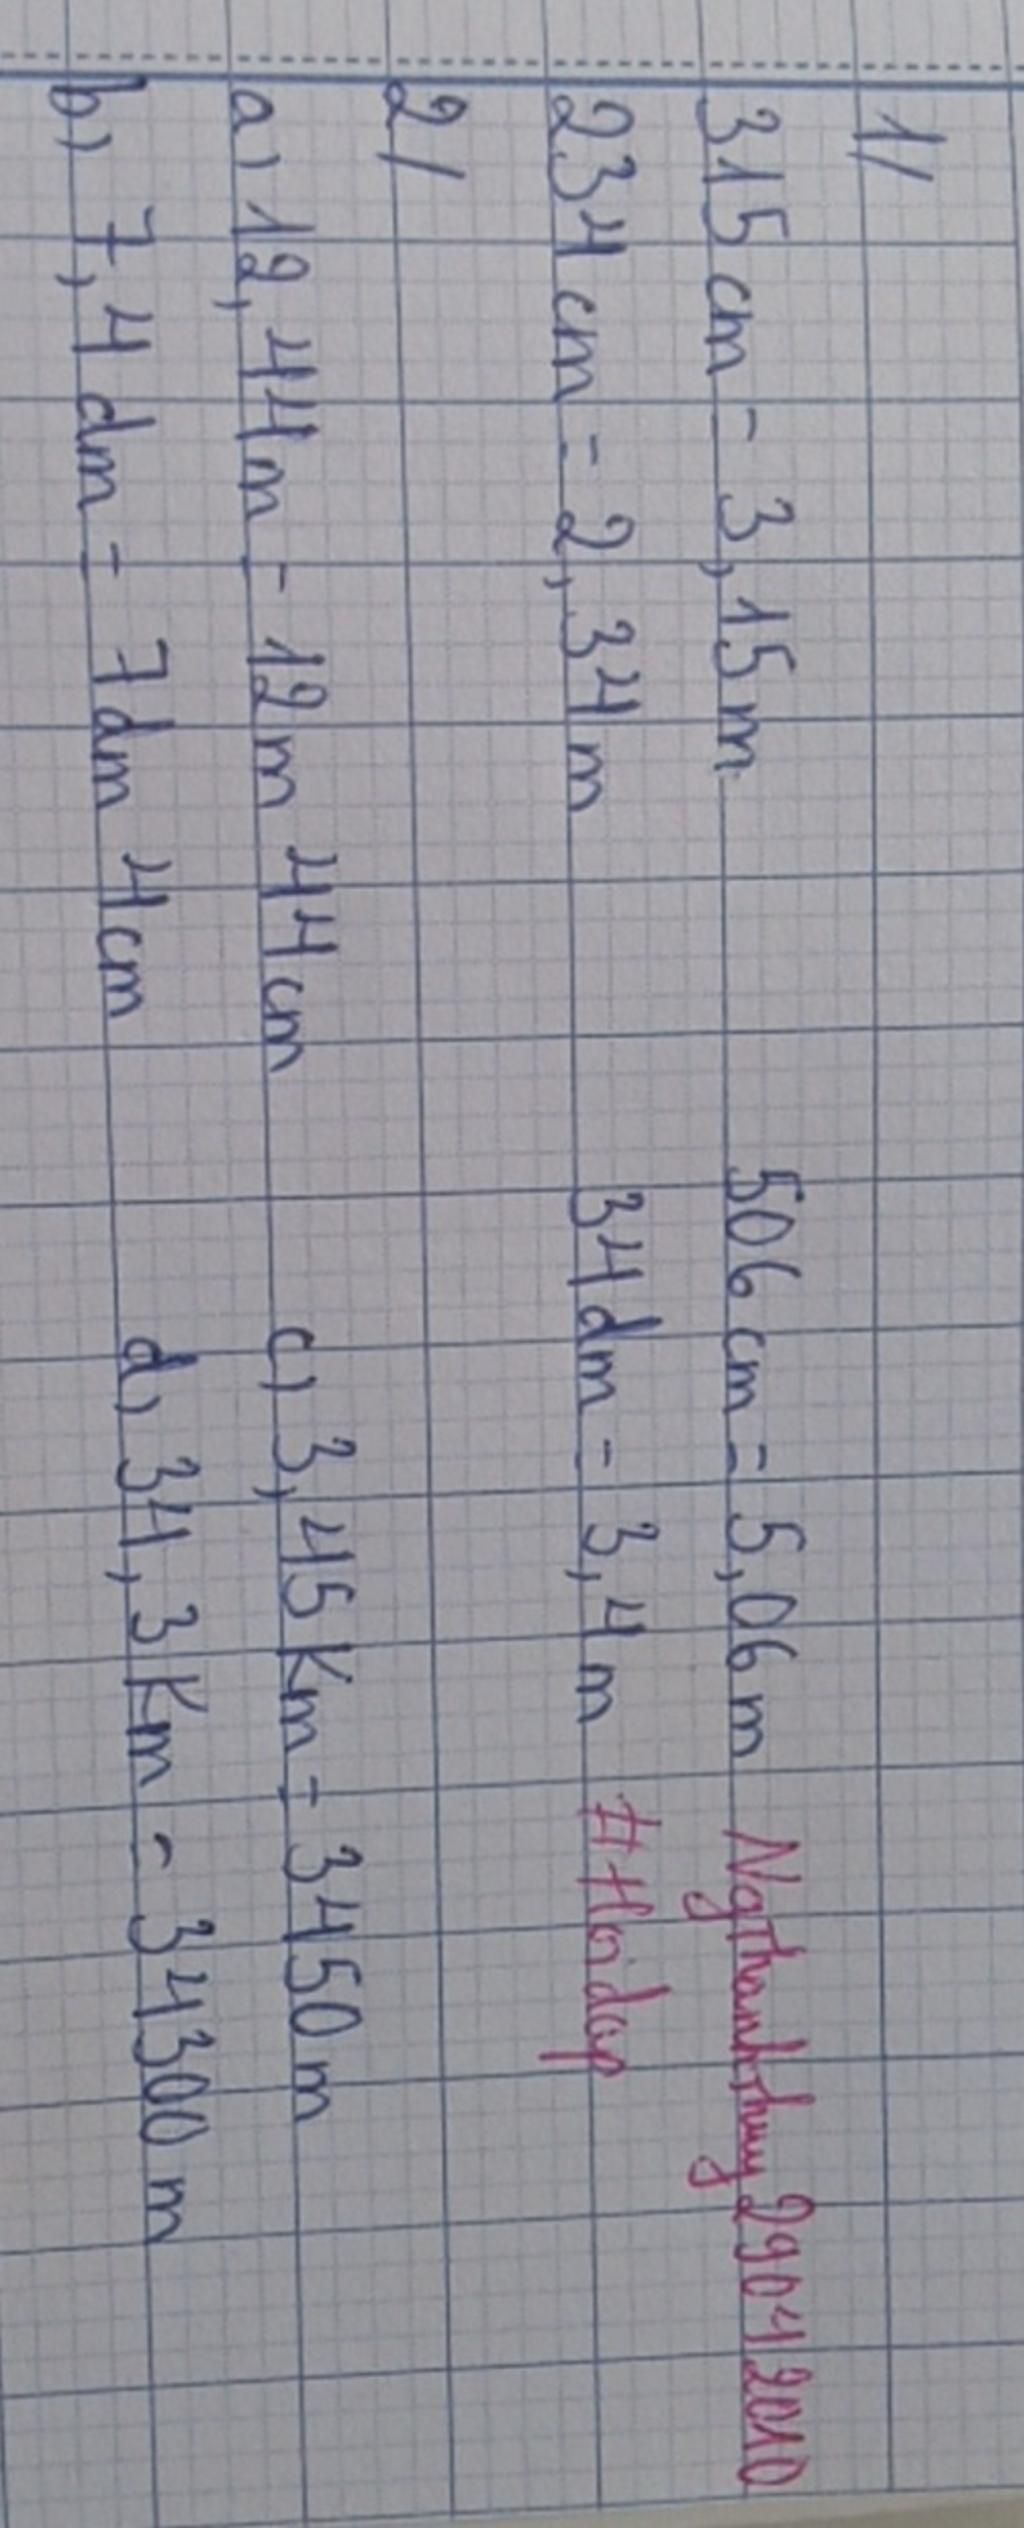 1/
315 cm = 3,15 m 506 cm = 5,06 m Ngthanhthuy29042010
234 cm = 2,34 m 34 dm = 3,4 m #Hoidap
2/
a) 12,44 m = 12 m 44 cm c) 3,45 Km = 3450 m
b) 7,4 dm = 7 dm 4 cm d) 34,3 Km = 34300 m